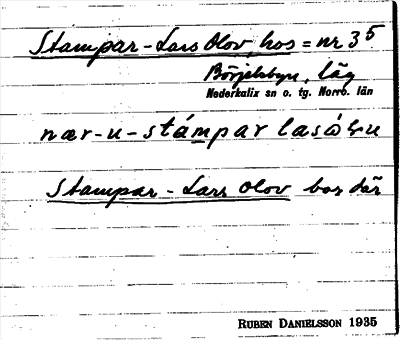 Stampar-Lars Olov, hos = nr 35
Börjelsbyn, läg
Nederkalix sn o. tg. Norrb. län
nær-u-stámpar
Stampar-Lars Olov bor där
RUBEN DANIELSSON 1935